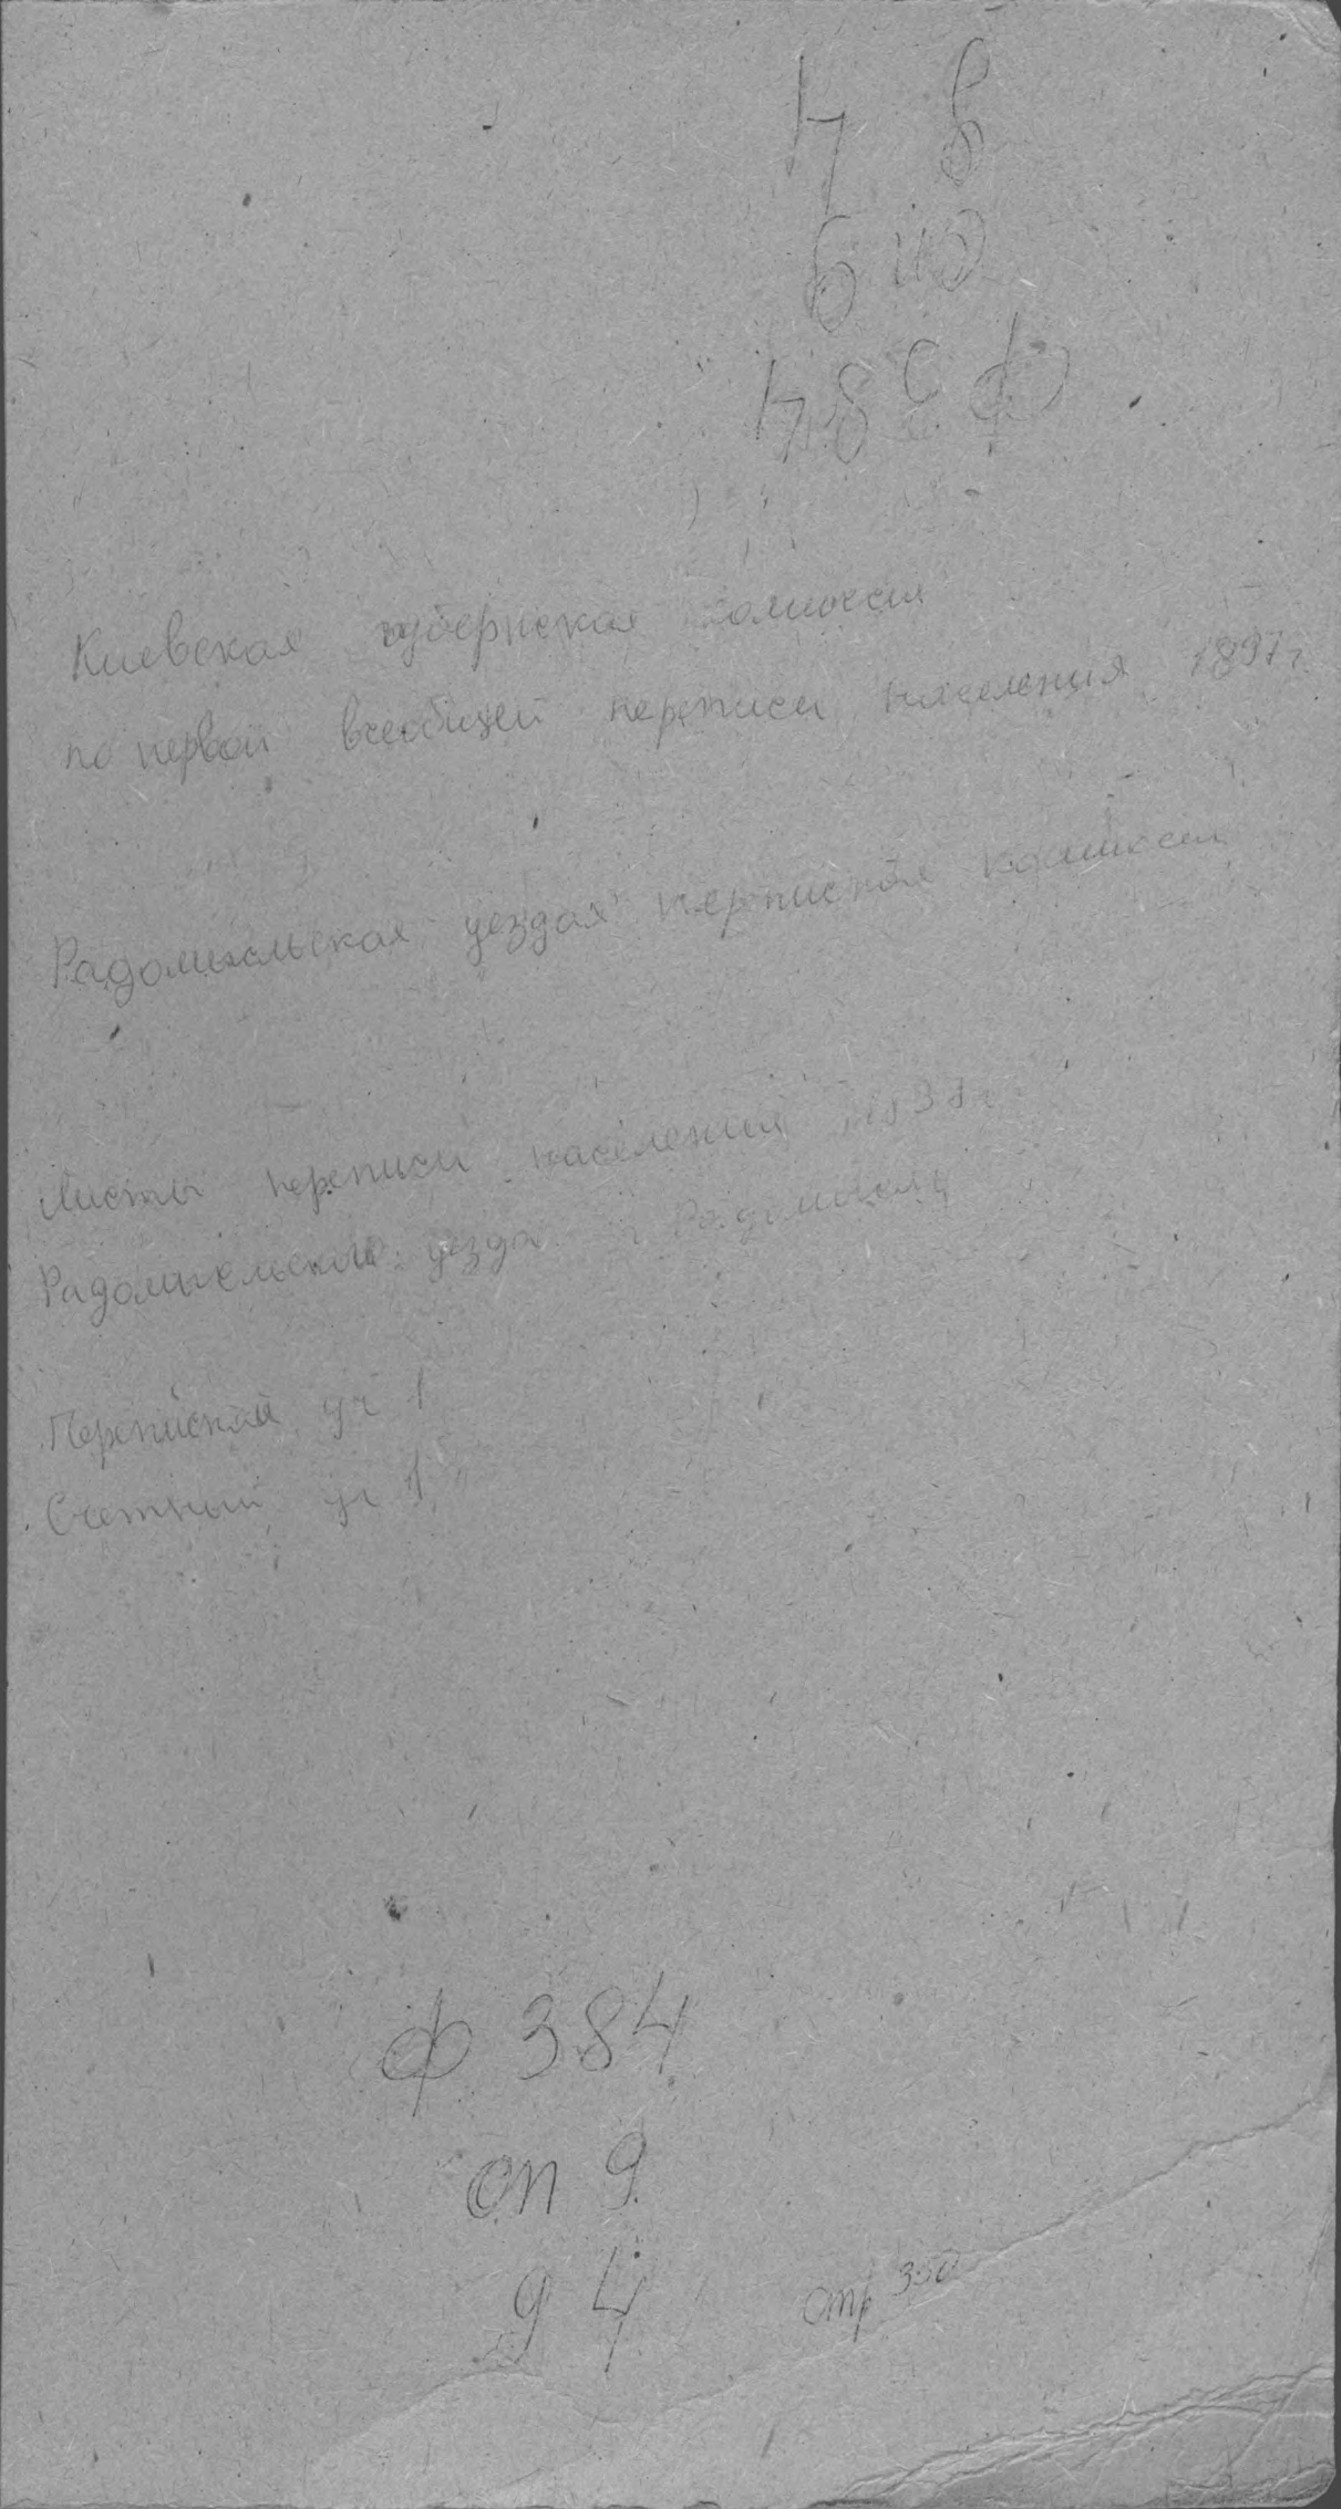 ф 384
оп 9
д 4
Киевская губернская комиссия
по первой всеобщей переписи населения 1897 г.
Радомысльская уездая переписная комиссия
Листы переписи населения
Радомысльского уезда г Радомысль
Переписной уч 1
Счетный уч 1
ф 384
оп 9
д 4
стр 350